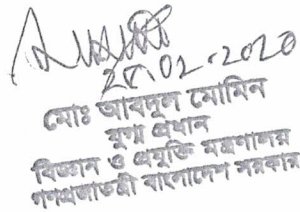 ২৫.০২.২০২০
মোঃ আবদুল মোমিন
যুগ্ম প্রধান
বিজ্ঞান ও প্রযুক্তি মন্ত্রণালয়
গণপ্রজাতন্ত্রী বাংলাদেশ সরকার